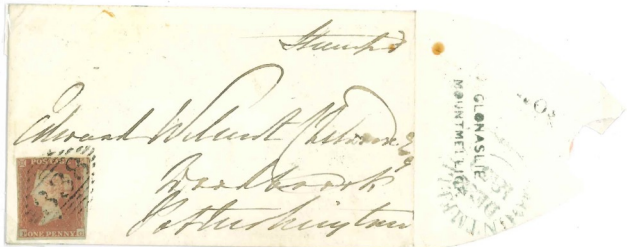 Stamped
Edward Wilmot Chetwode Esq
Woodbrook
Portarlington
POSTAGE
ONE PENNY
GLONASLIE
MOUNTMELLICK